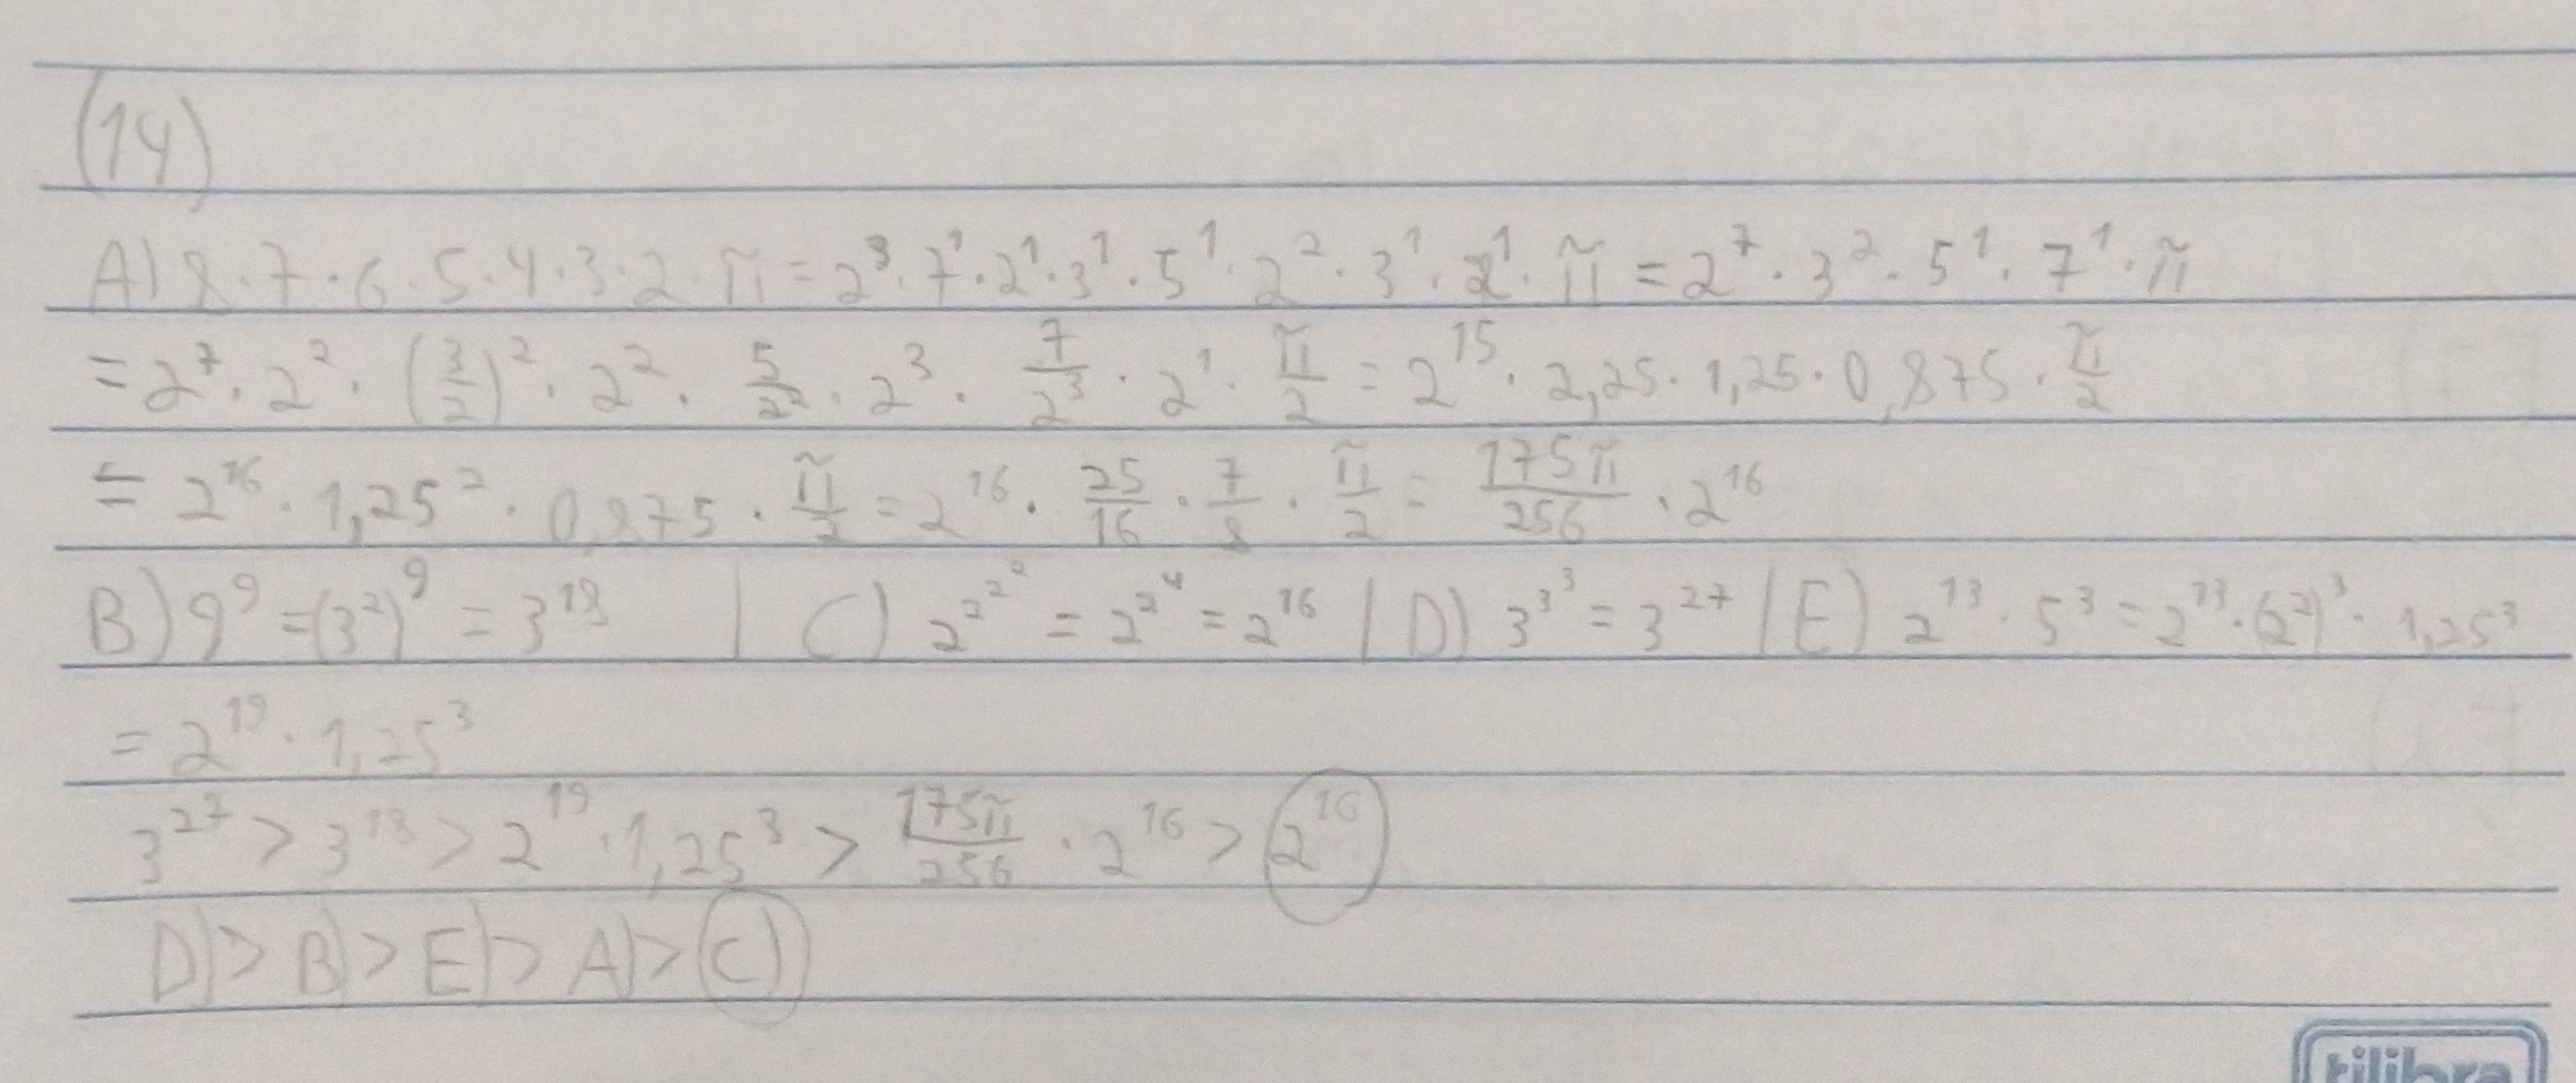 (14)
A) 8·7·6·5·4·3·2·π = 2³·7¹·2¹·3¹·5¹·2²·3¹·2¹·π = 2⁷·3²·5¹·7¹·π
= 2⁷·2²·(3/2)²·2²·5/2²·2³·7/2³·2¹·π/2 = 2¹⁵·2,25·1,25·0,875·π/2
= 2¹⁶·1,25²·0,875·π/2 = 2¹⁶·25/16·7/8·π/2 = 175π/256·2¹⁶
B) 9⁹ = (3²)⁹ = 3¹⁸ | C) 2^2^2^2 = 2^2^4 = 2¹⁶ | D) 3^3^3 = 3²⁷ | E) 2¹³·5³ = 2¹³·(2²)³·1,25³
= 2¹⁹·1,25³
3²⁷ > 3¹⁸ > 2¹⁹·1,25³ > 175π/256·2¹⁶ > 2¹⁶
D) > B) > E) > A) > C)
tilibra